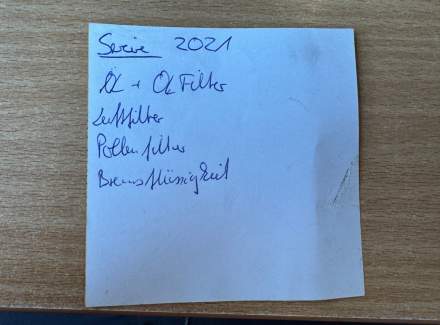 Service 2021
Öl + Öl Filter
Luftfilter
Pollenfilter
Bremsflüssigkeit